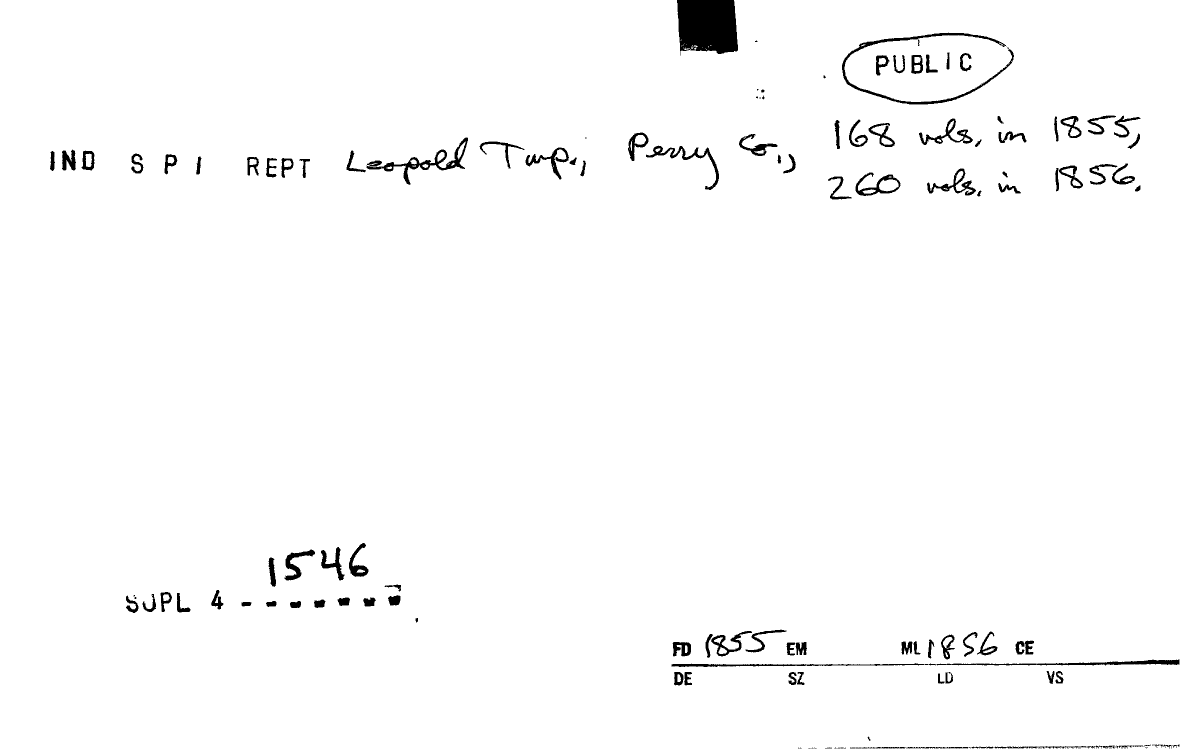 PUBLIC
IND S P I REPT Leopold Twp., Perry Co., 168 vols. in 1855,
260 vols. in 1856.
1546
SUPL 4 - - - - - - -
FD 1855 EM ML 1856 CE
DE SZ LD VS